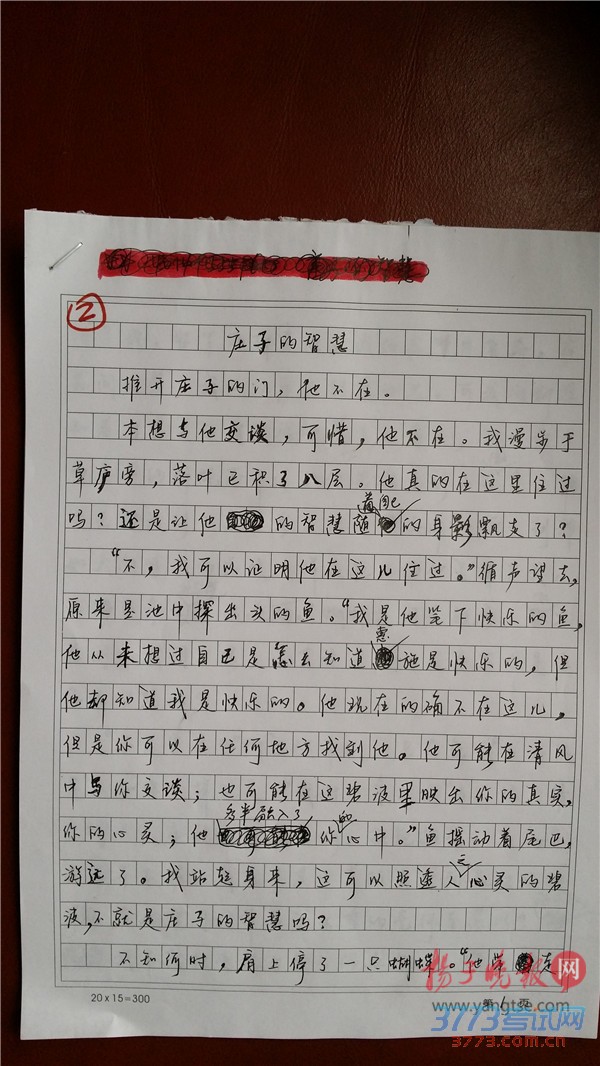 ②
庄子的智慧
推开庄子的门，他不在。
本想与他交谈，可惜，他不在。我漫步于
草庐旁，落叶已积了八层。他真的在这里住过
吗？还是让他的智慧随着自己的身影飘去了？
“不，我可以证明他在这儿住过。”循声望去，
原来是池中探出头的鱼。“我是他笔下快乐的鱼，
他从来想过自己是怎么知道惠施是快乐的，但
他却知道我是快乐的。他现在的确不在这儿，
但是你可以在任何地方找到他。他可能在清风
中与你交谈；也可能在这碧波里映出你的真实，
你的心灵；他多半融入了你的心中。”鱼摇动着尾巴，
游远了。我站起身来，这可以照透人之心灵的碧
波，不就是庄子的智慧吗？
不知何时，肩上停了一只蝴蝶。“他常是
20 x 15=300
扬子晚报网
www.yangtse.com
3773考试网
3773.com.cn